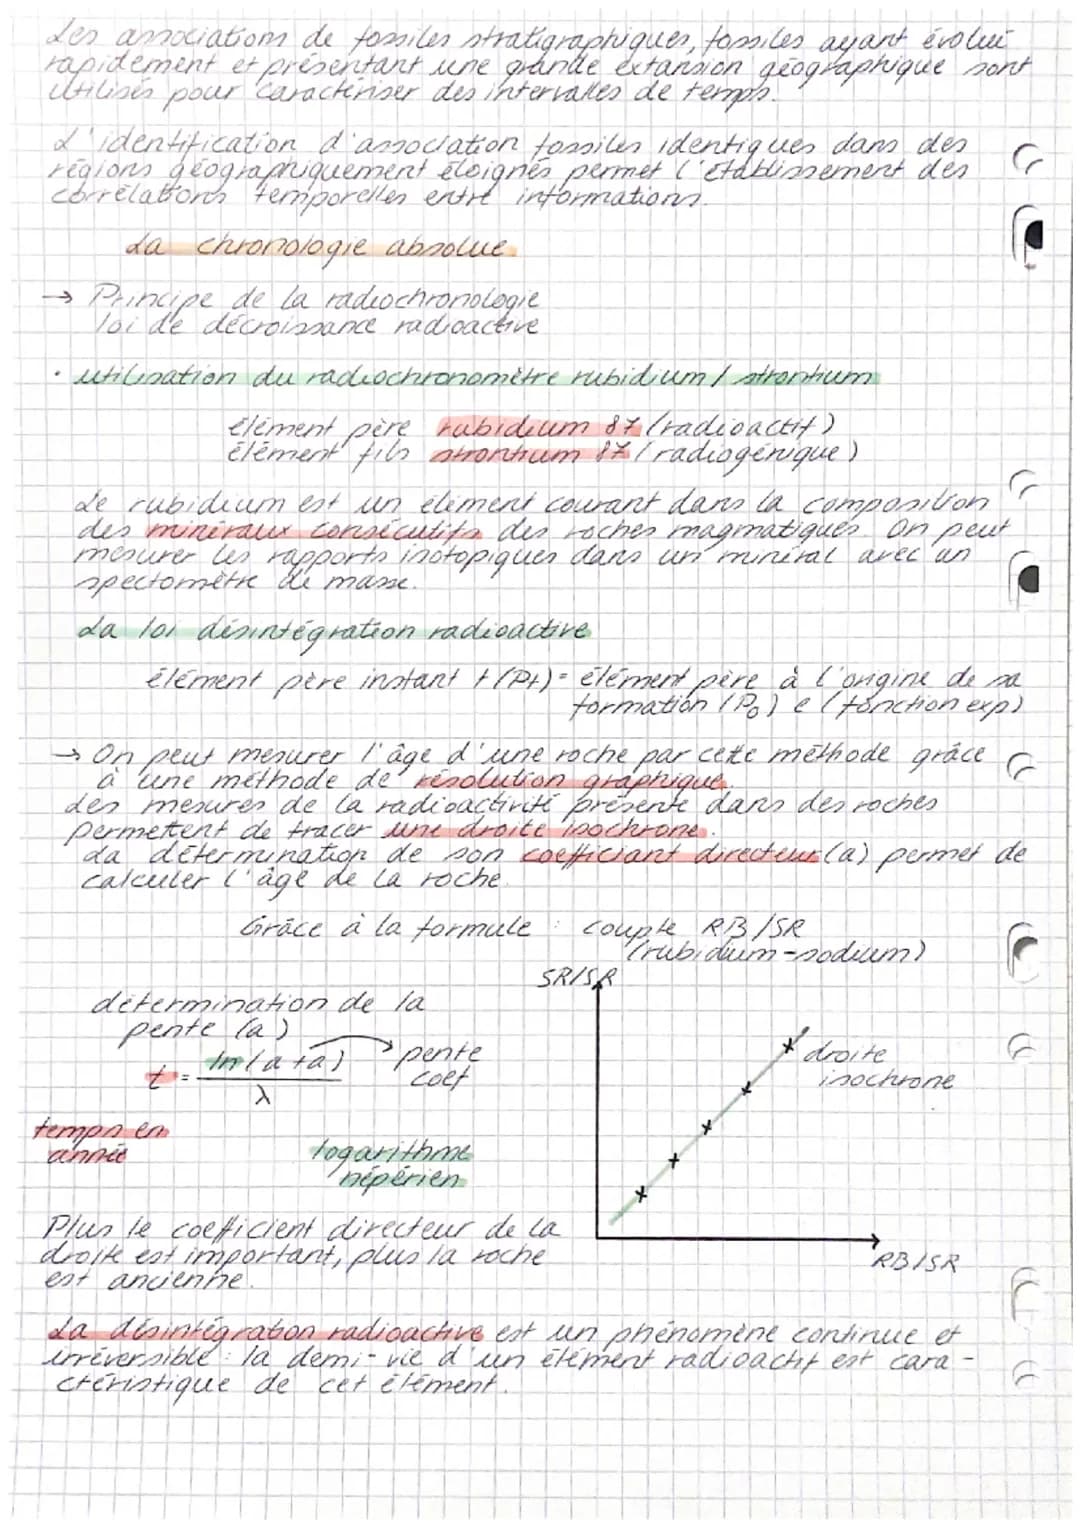 Les associations de fossiles stratigraphiques, fossiles ayant évolué
rapidement et présentant une grande extansion géographique sont
utilisés pour caractériser des intervalles de temps.
L'identification d'association fossiles identiques dans des
régions géographiquement éloignés permet l'établissement des
corrélations temporelles entre informations.
La chronologie absolue.
→ Principe de la radiochronologie
loi de décroissance radioactive
• utilisation du radiochronomètre rubidium / strontium
élément père rubidium 87 (radioactif)
élément fils strontium 87 (radiogénique)
Le rubidium est un élément courant dans la composition
des minéraux consécutifs des roches magmatiques. On peut
mesurer les rapports isotopiques dans un minéral avec un
spectomètre de masse.
La loi désintégration radioactive
élément père instant t (Pt) = élément père à l'origine de sa
formation (P₀) e (fonction exp)
→ On peut mesurer l'âge d'une roche par cette méthode grâce
à une méthode de résolution graphique.
des mesures de la radioactivité présente dans des roches
permettent de tracer une droite isochrone.
La détermination de son coefficiant directeur (a) permet de
calculer l'âge de la roche.
Grâce à la formule : couple RB/SR
(rubidium-sodium)
SR/SR
détermination de la
pente (a)
t = ln(a+a) / λ
pente
coef
droite
isochrone
temps en
année
logarithme
népérien
Plus le coefficient directeur de la
droite est important, plus la roche
est ancienne.
RB/SR
La désintégration radioactive est un phénomène continue et
irréversible : la demi-vie d'un élément radioactif est cara-
ctéristique de cet élément.